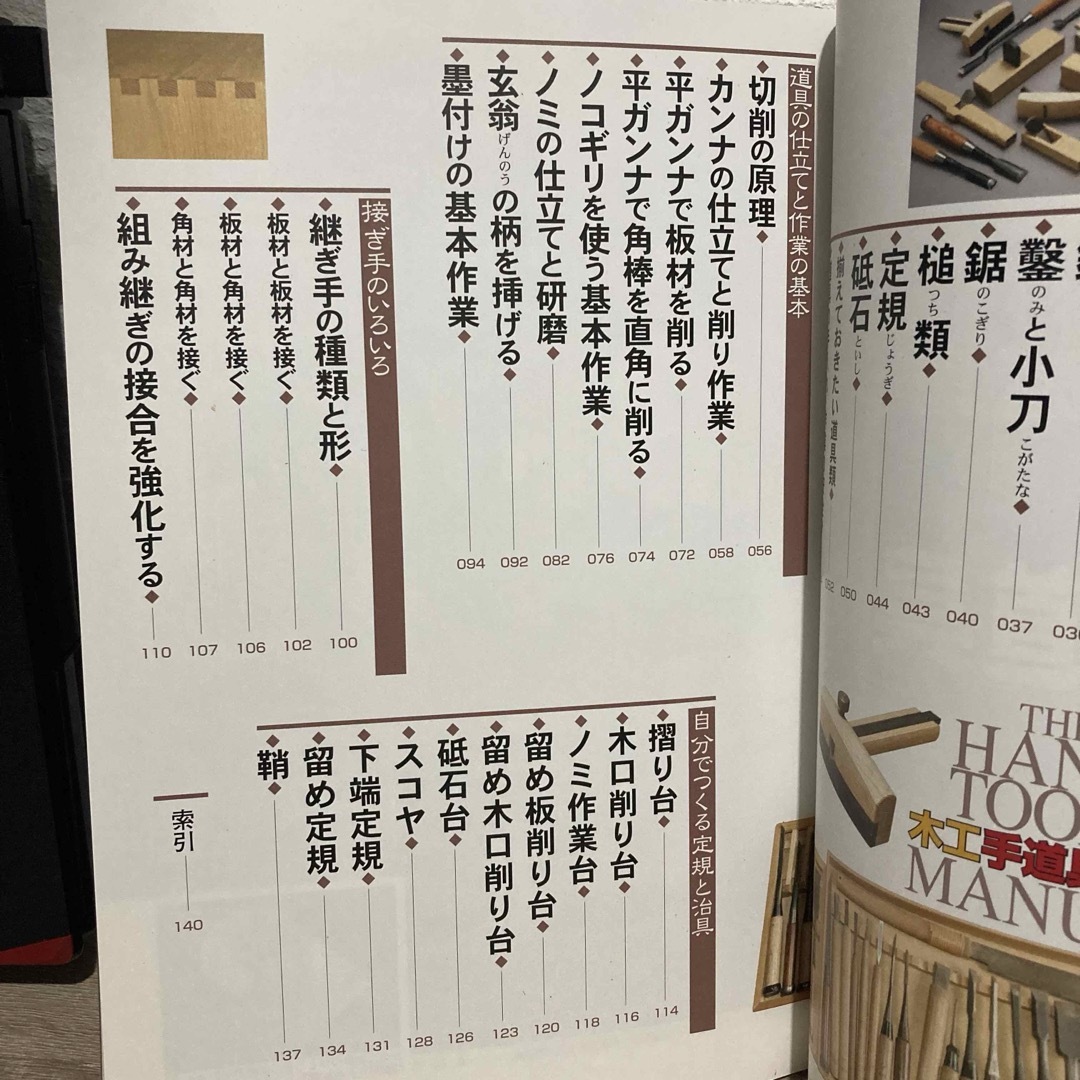 鑿のみと小刀こがたな
037
鋸のこぎり
040
槌つち類
043
定規じょうぎ
044
砥石といし
050
揃えておきたい道具類
052
THE
HAN
TOO
木工手道具
MANU
道具の仕立てと作業の基本
切削の原理
056
カンナの仕立てと削り作業
058
平ガンナで板材を削る
072
平ガンナで角棒を直角に削る
074
ノコギリを使う基本作業
076
ノミの仕立てと研磨
082
玄翁げんのうの柄を挿げる
092
墨付けの基本作業
094
接ぎ手のいろいろ
継ぎ手の種類と形
100
板材と板材を接ぐ
102
板材と角材を接ぐ
106
角材と角材を接ぐ
107
組み継ぎの接合を強化する
110
自分でつくる定規と治具
摺り台
114
木口削り台
116
ノミ作業台
118
留め板削り台
120
留め木口削り台
123
砥石台
126
スコヤ
128
下端定規
131
留め定規
134
鞘
137
索引
140